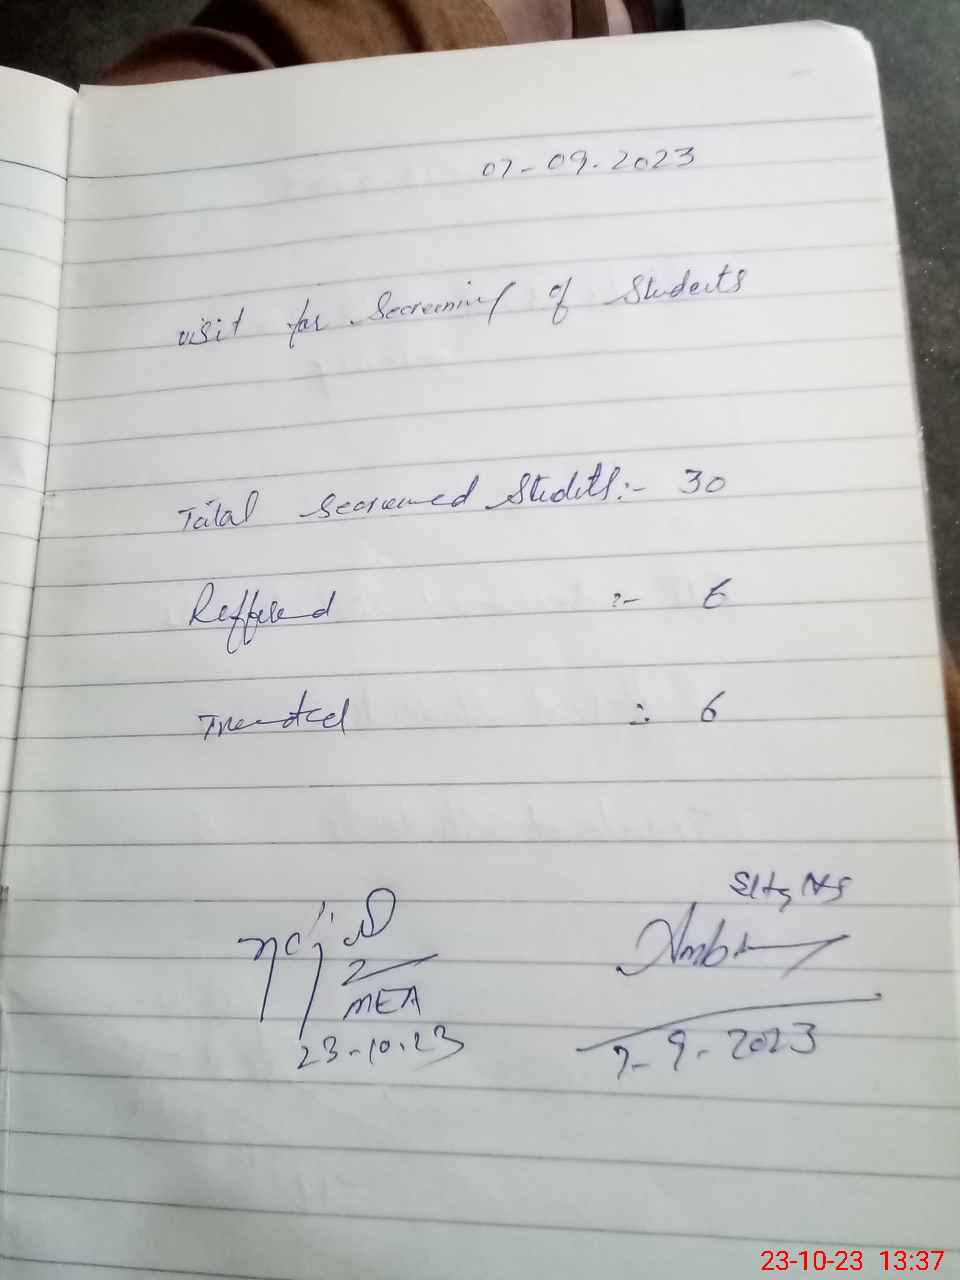 07-09-2023
visit for Secreening of Students
Total Secreened Students:- 30
Reffered :- 6
Treated :- 6
MEA
23-10-23
7-9-2023
23-10-23 13:37